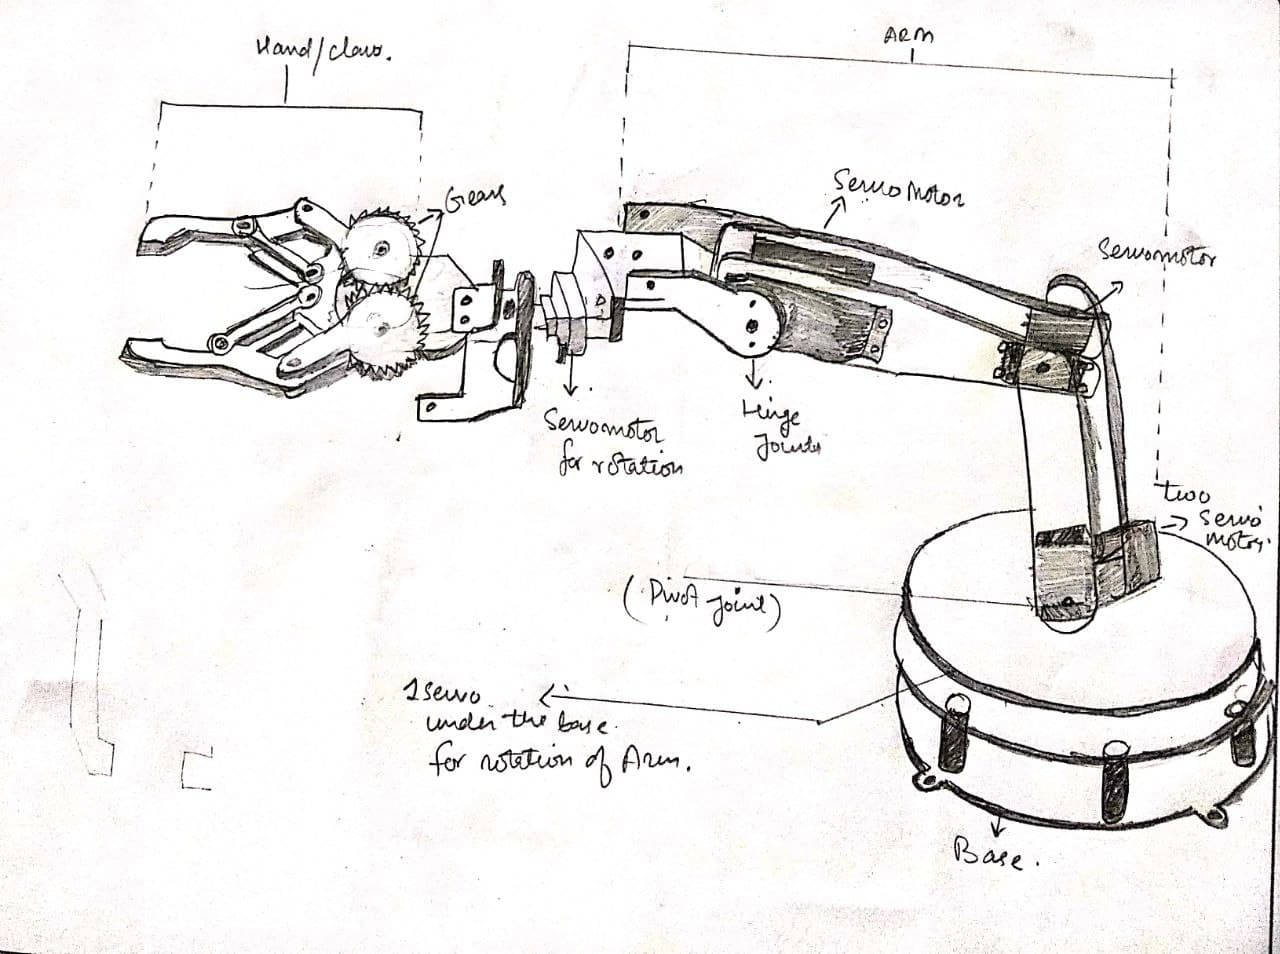 Hand/claw.
ARM
Gears
Servo Motor
Servomotor
Servomotor
for rotation
Hinge
Joints
two
Servo
motor.
(Pivot joint)
1 servo
under the base.
for rotation of Arm.
Base.